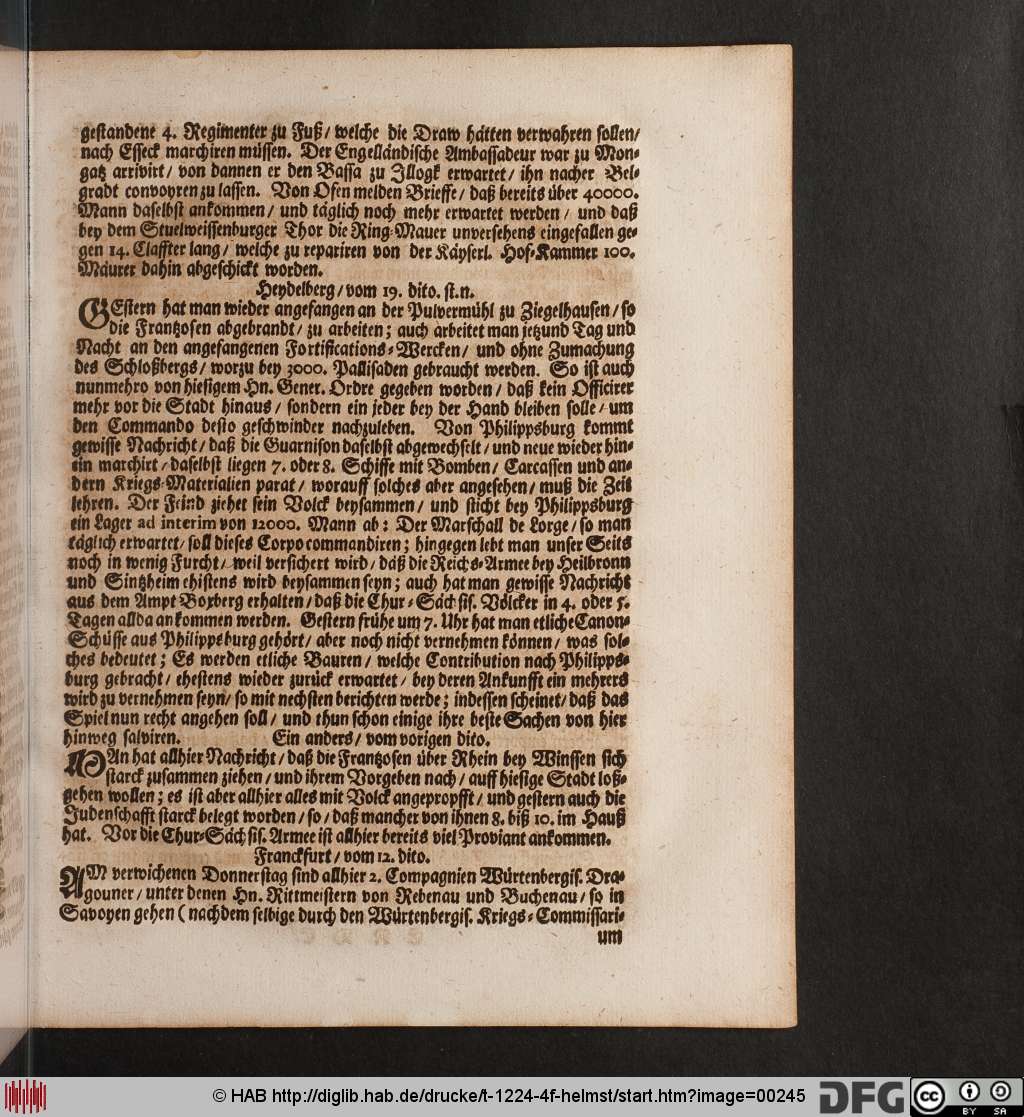 gestandene 4. Regimenter zu Fuß/ welche die Draw hätten verwahren sollen/
nach Esseck marchiren müssen. Der Engelländische Ambassadeur war zu Mon-
gatz arrivirt/ von dannen er den Bassa zu Jllogk erwartet/ ihn nacher Bel-
gradt convoyren zu lassen. Von Ofen melden Brieffe/ daß bereits über 40000.
Mann daselbst ankommen/ und täglich noch mehr erwartet werden/ und daß
bey dem Stuelweissenburger Thor die Ring-Mauer unversehens eingefallen ge-
gen 14. Claffter lang/ welche zu repariren von der Käyserl. Hof-Kammer 100.
Mäurer dahin abgeschickt worden.
Heydelberg/ vom 19. dito. st.n.
GEstern hat man wieder angefangen an der Pulvermühl zu Ziegelhausen/ so
die Frantzosen abgebrandt/ zu arbeiten; auch arbeitet man jetzund Tag und
Nacht an den angefangenen Fortifications-Wercken/ und ohne Zumachung
des Schloßbergs/ worzu bey 3000. Pallisaden gebraucht werden. So ist auch
nunmehro von hiesigem Hn. Gener. Ordre gegeben worden/ daß kein Officirer
mehr vor die Stadt hinaus/ sondern ein jeder bey der Hand bleiben solle/ um
den Commando desto geschwinder nachzuleben. Von Philippsburg kommt
gewisse Nachricht/ daß die Guarnison daselbst abgewechselt/ und neue wieder hin-
ein marchirt/ daselbst liegen 7. oder 8. Schiffe mit Bomben/ Carcassen und an-
dern Kriegs-Materialien parat/ worauff solches aber angesehen/ muß die Zeit
lehren. Der Feind ziehet sein Volck beysammen/ und sticht bey Philippsburg
ein Lager ad interim von 12000. Mann ab: Der Marschall de Lorge/ so man
täglich erwartet/ soll dieses Corpo commandiren; hingegen lebt man unser Seits
noch in wenig Furcht/ weil versichert wird/ daß die Reichs-Armee bey Heilbronn
und Sintzheim ehistens wird beysammen seyn; auch hat man gewisse Nachricht
aus dem Ampt Boxberg erhalten/ daß die Chur-Sächsis. Völcker in 4. oder 5.
Tagen allda ankommen werden. Gestern frühe um 7. Uhr hat man etliche Canon-
Schüsse aus Philippsburg gehört/ aber noch nicht vernehmen können/ was sol-
ches bedeutet; Es werden etliche Bauren/ welche Contribution nach Philipps-
burg gebracht/ ehestens wieder zurück erwartet/ bey deren Ankunfft ein mehrers
wird zu vernehmen seyn/ so mit nechsten berichten werde; indessen scheinet/ daß das
Spiel nun recht angehen soll/ und thun schon einige ihre beste Sachen von hier
hinweg salviren. Ein anders/ vom vorigen dito.
MAn hat allhier Nachricht/ daß die Frantzosen über Rhein bey Winssen sich
starck zusammen ziehen/ und ihrem Vorgeben nach/ auff hiesige Stadt loß-
gehen wollen; es ist aber allhier alles mit Volck angepropfft/ und gestern auch die
Judenschafft starck belegt worden/ so/ daß mancher von ihnen 8. biß 10. im Hauß
hat. Vor die Chur-Sächsis. Armee ist allhier bereits viel Proviant ankommen.
Franckfurt/ vom 12. dito.
AM verwichenen Donnerstag sind allhier 2. Compagnien Würtenbergis. Dra-
gouner/ unter denen Hn. Rittmeistern von Rebenau und Buchenau/ so in
Savoyen gehen (nachdem selbige durch den Würtenbergis. Kriegs-Commissari-
um
© HAB http://diglib.hab.de/drucke/t-1224-4f-helmst/start.htm?image=00245
DFG
cc
BY SA